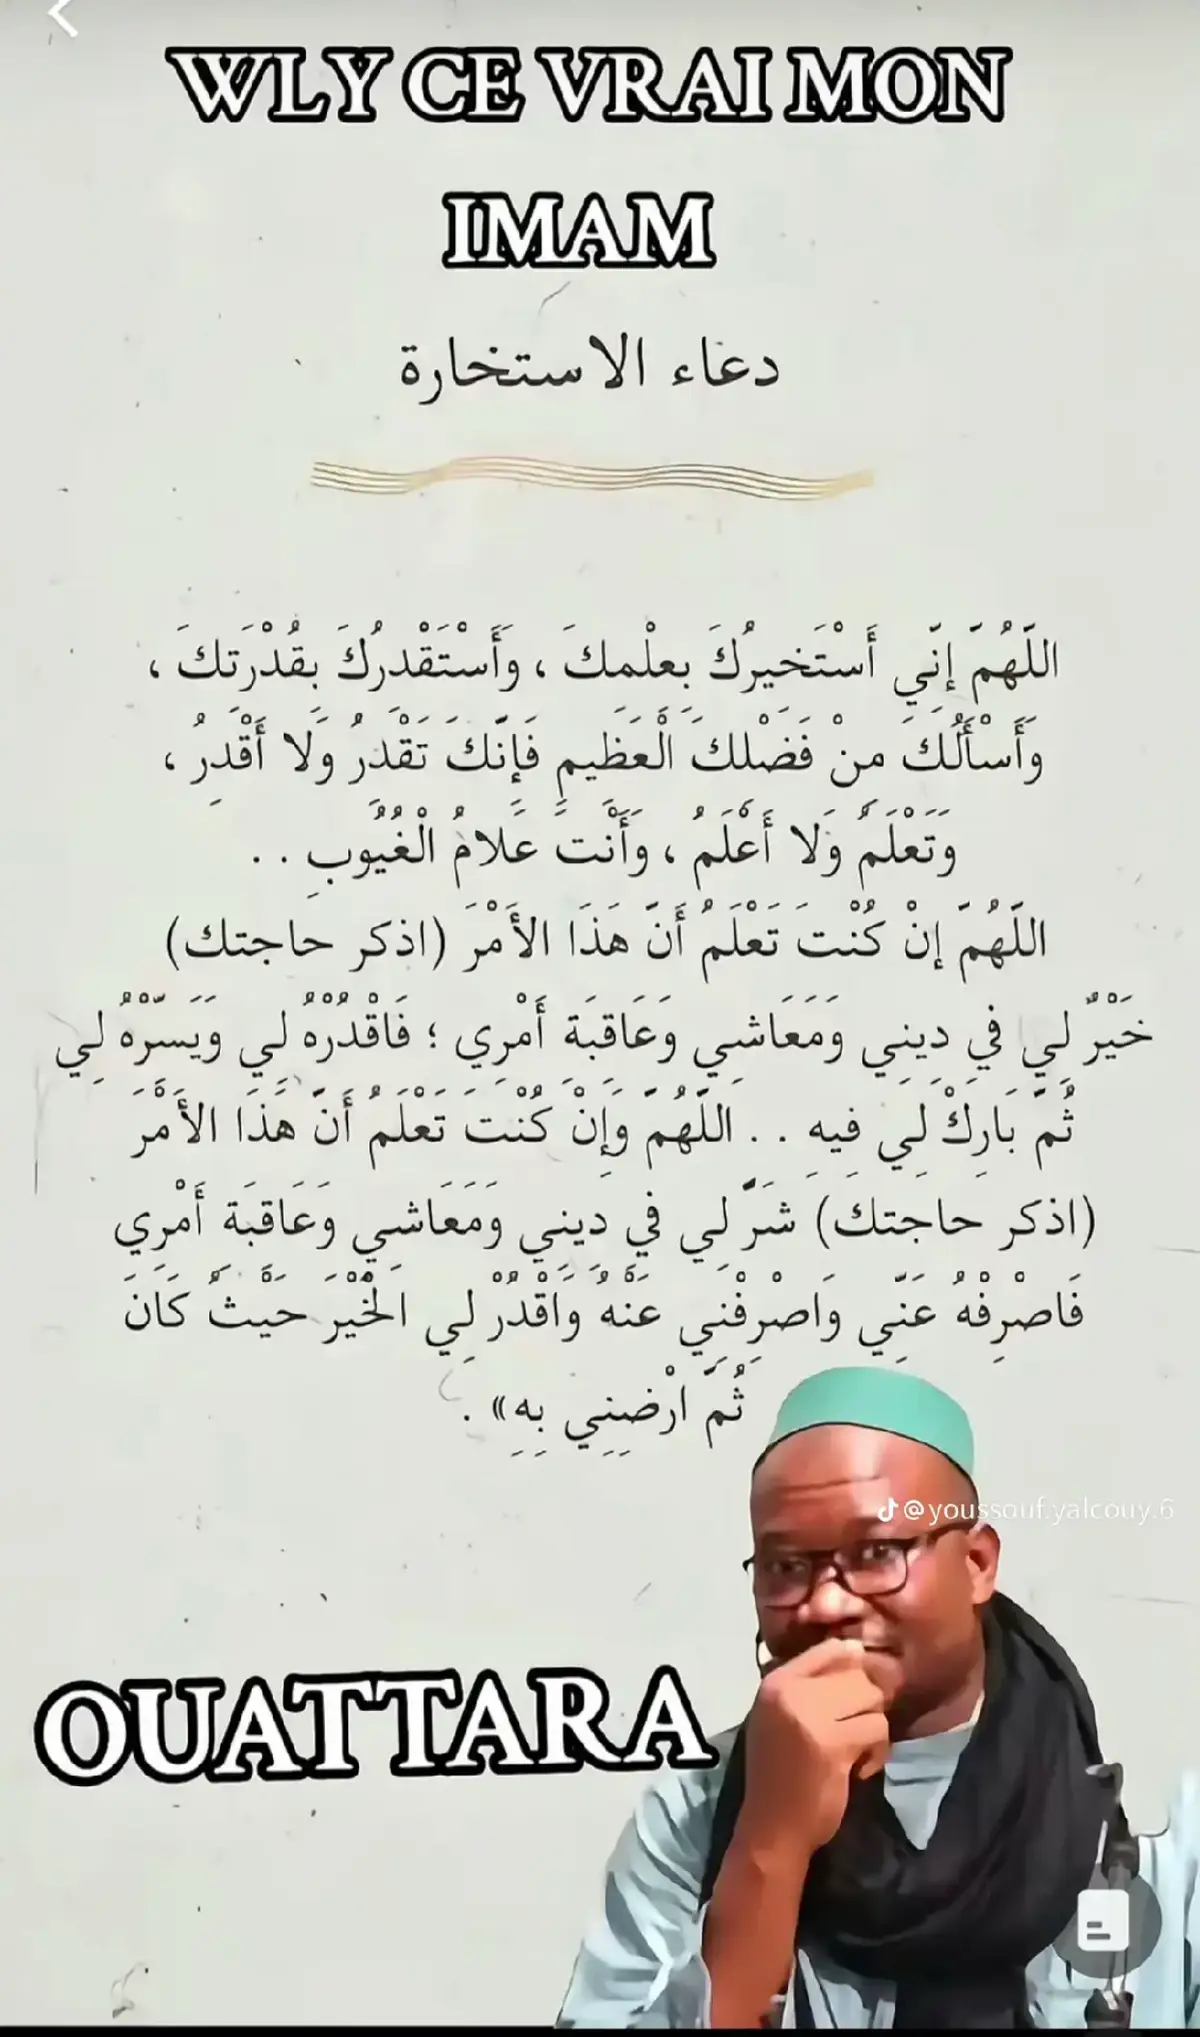 WLY CE VRAI MON
IMAM
دعاء الاستخارة
اللَّهُمَّ إِنِّي أَسْتَخِيرُكَ بِعِلْمِكَ ، وَأَسْتَقْدِرُكَ بِقُدْرَتِكَ ،
وَأَسْأَلُكَ مِنْ فَضْلِكَ الْعَظِيمِ فَإِنَّكَ تَقْدِرُ وَلا أَقْدِرُ ،
وَتَعْلَمُ وَلا أَعْلَمُ ، وَأَنْتَ عَلامُ الْغُيُوبِ . .
اللَّهُمَّ إِنْ كُنْتَ تَعْلَمُ أَنَّ هَذَا الأَمْرَ (اذكر حاجتك)
خَيْرٌ لِي فِي دِينِي وَمَعَاشِي وَعَاقِبَةِ أَمْرِي ؛ فَاقْدُرْهُ لِي وَيَسِّرْهُ لِي
ثُمَّ بَارِكْ لِي فِيهِ . . اللَّهُمَّ وَإِنْ كُنْتَ تَعْلَمُ أَنَّ هَذَا الأَمْرَ
(اذكر حاجتك) شَرٌّ لِي فِي دِينِي وَمَعَاشِي وَعَاقِبَةِ أَمْرِي
فَاصْرِفْهُ عَنِّي وَاصْرِفْنِي عَنْهُ وَاقْدُرْ لِي الْخَيْرَ حَيْثُ كَانَ
ثُمَّ ارْضِنِي بِهِ» .
@youssouf.yalcouy.6
OUATTARA